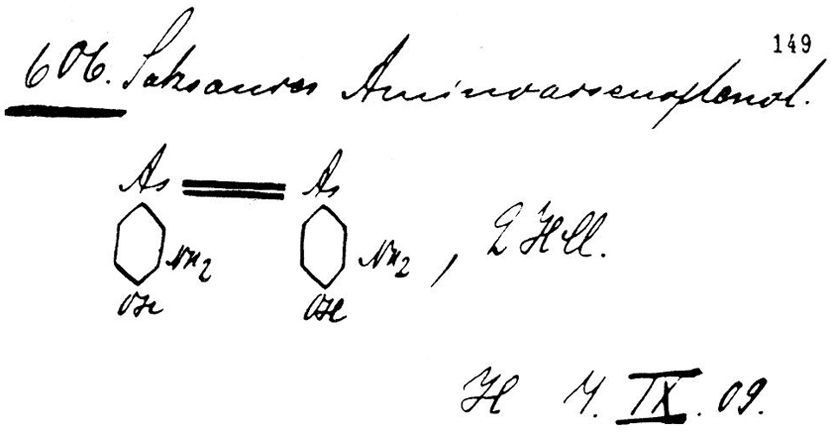 149
606. Salzsaures Aminoarsenophenol.
As As
NH2 NH2, 2 HCl.
OH OH
H 4. IX. 09.